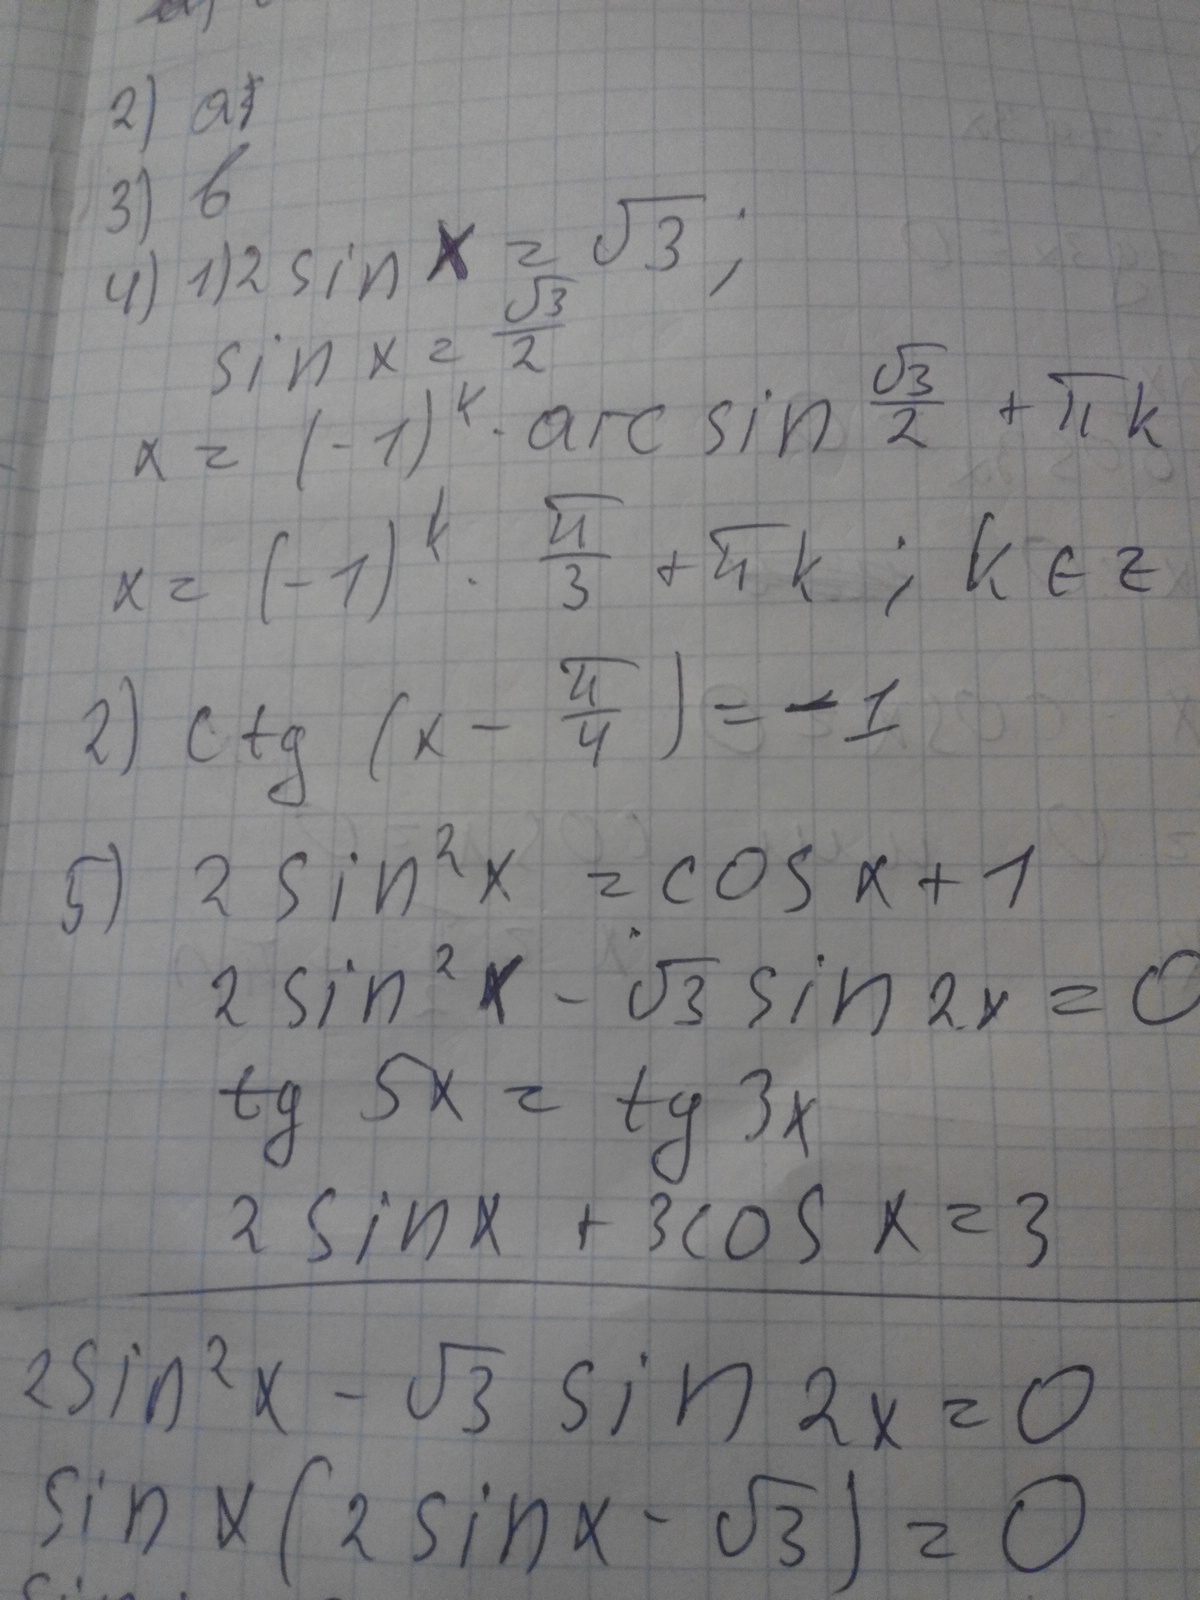 2) a
3) в
4) 1) 2 sin x = √3 ;
sin x = √3/2
x = (-1)^k · arc sin √3/2 + πk
x = (-1)^k · π/3 + πk ; k ∈ z
2) ctg (x - π/4) = -1
5) 2 sin²x = cos x + 1
2 sin²x - √3 sin 2x = 0
tg 5x = tg 3x
2 sin x + 3 cos x = 3
2 sin²x - √3 sin 2x = 0
sin x (2 sin x - √3) = 0